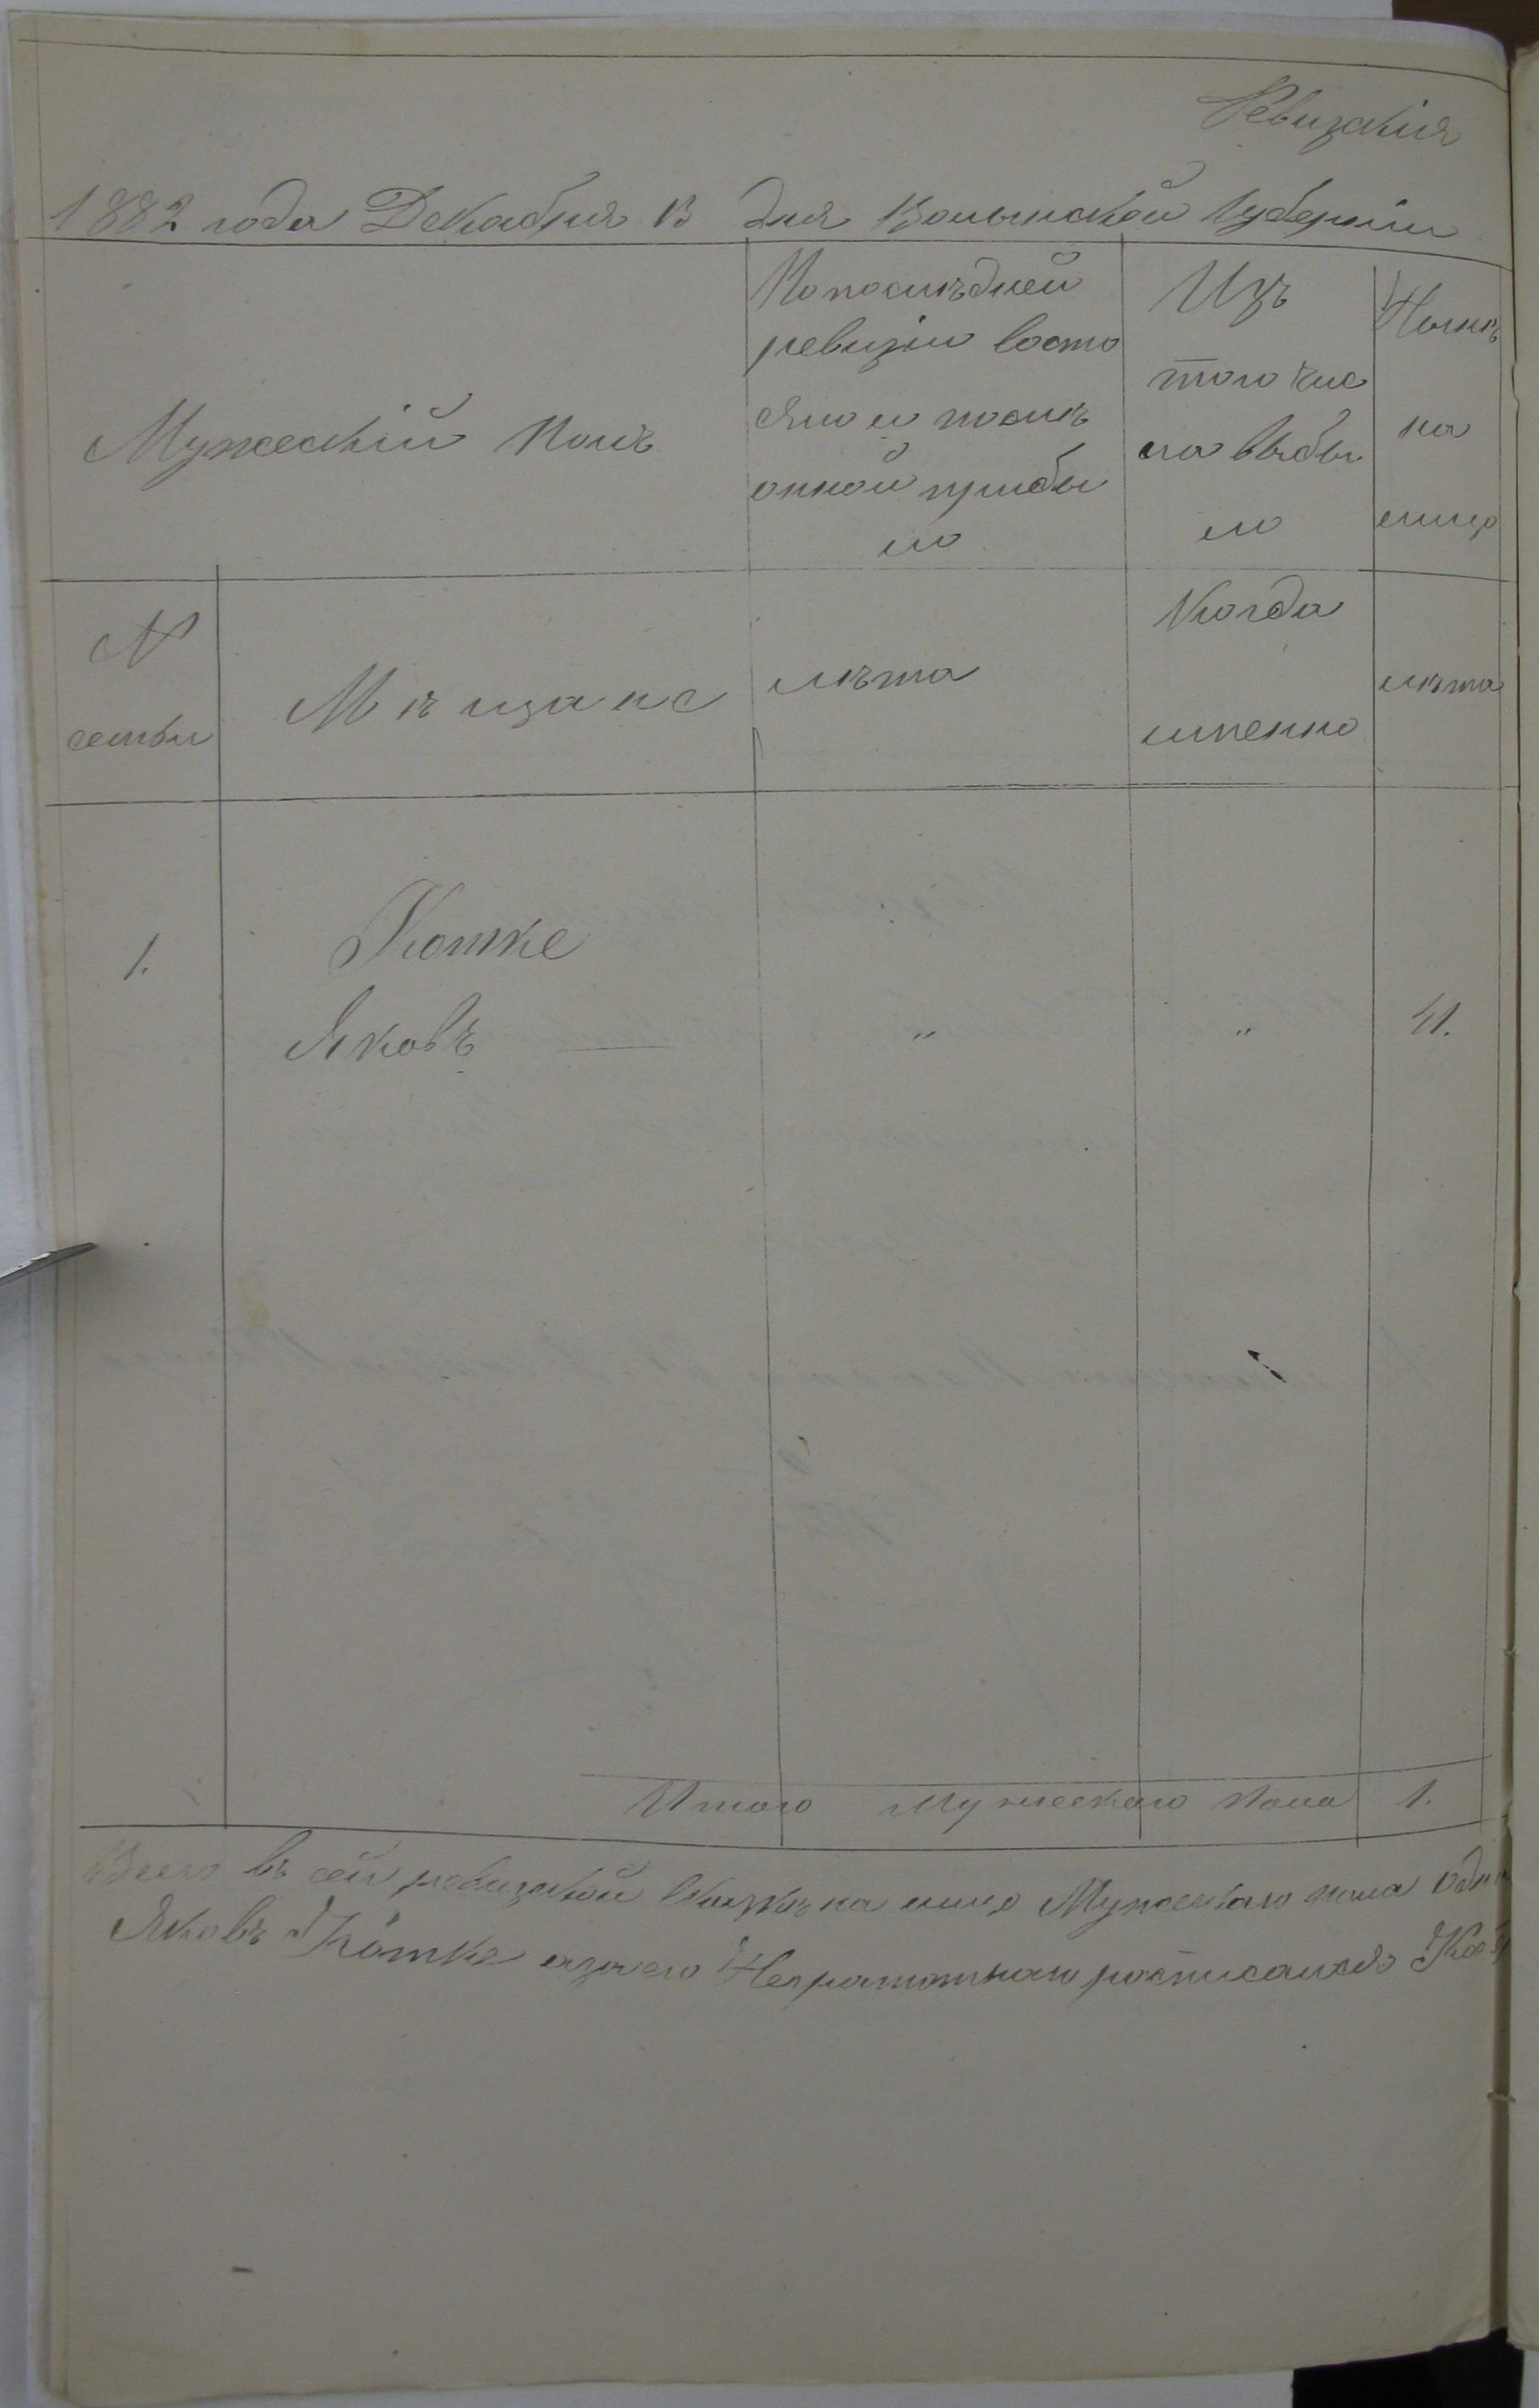 Ревизскія
1882 года Декабря 13 дня Волынской Губерніи
Мужескій Полъ
По послѣдней
ревизіи состо
яло и послѣ
оной прибы
ло
Изъ
того чис
ла выбы
ло
Нынѣ
на
лицо
№
семьи
Мѣщане
лѣта
Когда
именно
лѣта
1.
Котке
Яковъ " " 41.
Итого Мужескаго Пола 1.
Всего въ сей ревизской сказкѣ на лицо Мужескаго пола одна
Яковъ Котке а за его Неграмотнаго росписался